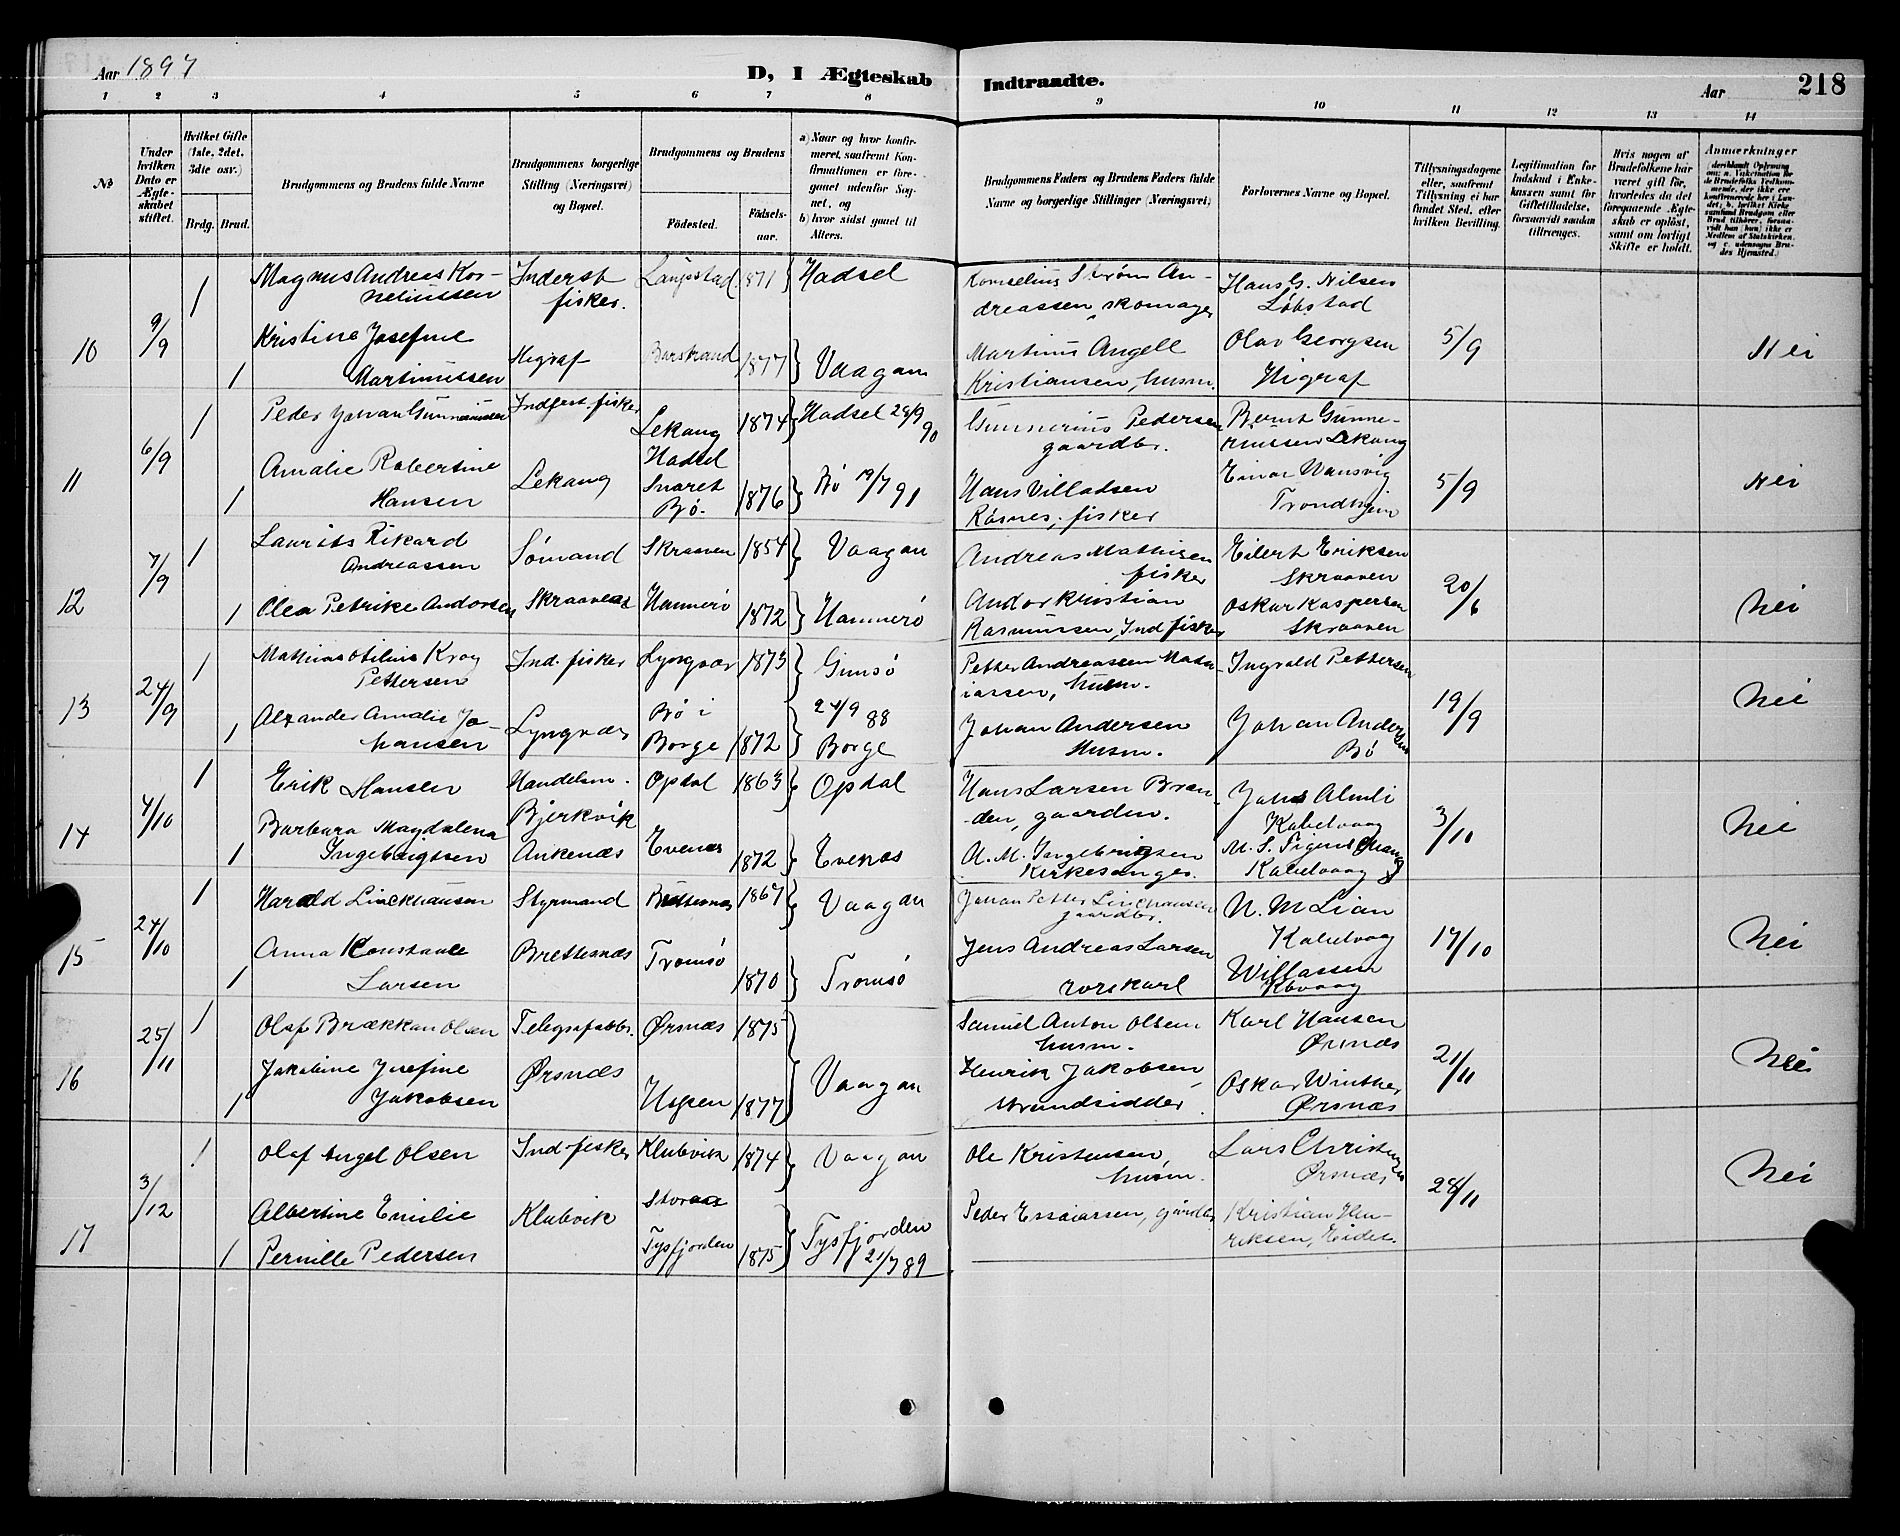 Aar 1897
D, I Ægteskab Indtraadte.
Aar
218
1 2 3 4 5 6 7 8 9 10 11 12 13 14
№
Under hvilken Dato er Ægteskabet stiftet.
Hvilket Gifte (1ste, 2det, 3die osv.)
Brdg. Brud.
Brudgommens og Brudens fulde Navne
Brudgommens borgerlige Stilling (Næringsvei) og Bopæl.
Brudgommens og Brudens
Fødested.
Fødsels-aar.
a) Naar og hvor konfirmeret, saafremt Konfirmationen er foregaaet udenfor Sognet, og
b) hvor sidst gaaet til Alters.
Brudgommens Faders og Brudens Faders fulde Navne og borgerlige Stillinger (Næringsvei)
Forlovernes Navne og Bopæl.
Tillysningsdagene eller, saafremt Tillysning ei har fundet Sted, efter hvilken Bevilling.
Legitimation for Indskud i Enkekassen samt for Giftetilladelse, forsaavidt saadan tiltrænges.
Hvis nogen af Brudefolkene har været gift før, hvorledes da det foregaaende Ægteskab er opløst, samt om lovligt Skifte er holdt.
Anmærkninger
10 9/9 1 Magnus Andreas Korneliussen Inderst fisker. Laupstad 1871 Hadsel Kornelius Strøm Andreassen, skomager Hans G. Nilsen Løbstad 5/9 Nei
1 Kristine Josefine Martinussen Higraf 1877 Vaagan Martinus Angell Kristiansen, husm. Olav Georgsen Higraf
11 6/9 1 Peder Johan Gunneriussen Indfest. fisker Lekang Hadsel 1874 Hadsel 28/9 90 Gunnerius Pedersen gaardbr. Bernt Gunneriussen Lekang 5/9 Nei
1 Amalie Robertine Hansen Lekang Svaret Bø. 1876 Bø 19/7 91 Hans Villadsen Røsnes, fisker Einar Wansvig Trondhjem
12 7/9 1 Laurits Rikard Andreassen Sømand Skraaven 1854 Vaagan Andreas Mathisen fisker Eilert Eriksen Skraaven 20/6 Nei
1 Olea Petrike Andorsen Skraaven Hammerø 1872 Hammerø Andor Kristian Rasmussen, Ind fisker Oskar Kaspersen Skraaven
13 24/9 1 Mathias Otilius Krog Pettersen Ind. fisker Lyngvær 1873 Gimsø Petter Andreassen Mathiassen, husm. Ingvald Pettersen 19/9 Nei
1 Alexander Amalie Johansen Lyngvær Bø i Borge 1872 24/9 88 Borge Johan Andersen Husm. Johan Andersen Bø
14 4/10 1 Erik Hansen Handelsm. Opdal 1863 Opdal Hans Larsen Brænden, gaarden. Johs Almli Kabelvaag 3/10 Nei
1 Barbara Magdalena Ingebrigtsen Bjerkvik Ankenæs Evenæs 1872 Evenæs A. M. Ingebrigtsen Kirkesanger. Kabelvaag
15 24/10 1 Harald Linckhausen Styrmand Brettesnæs 1867 Vaagan Johan Petter Linckhausen gaardbr. N. M Lian Kabelvaag 17/10 Nei
1 Anna Konstanse Larsen Brettesnæs Tromsø 1870 Tromsø Jens Andreas Larsen rorskarl Willassen Kbvaag
16 25/11 1 Olaf Brækkan Olsen Telegrafarb. Ørsnæs 1875 Samuel Anton Olsen husm. Karl Hansen Ørsnæs 21/11 Nei
1 Jakobine Josefine Jakobsen Ørsnæs Hopen 1877 Vaagan Henrik Jakobsen strandsidder Oskar Winther Ørsnæs
17 3/12 1 Olaf Angel Olsen Ind. fisker Klubvik 1874 Vaagan Ole Kristensen, husm. Lars Christensen Ørsnæs 28/11 Nei
1 Albertine Emilie Pernille Pedersen Klubvik Storaa Tysfjorden 1875 Tysfjorden 21/7 89 Peder Essaiassen, gaardbr Kristian Henriksen, Eidet.